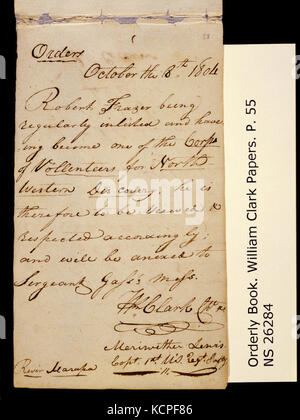 Orders
October the 8th 1804
Robert Frazer being
regularly inlisted and have
ing become one of the Corps
of Vollenteers for North
Western Discovery, he is
therefore to be viewed &
respected accordingly;
and will be anexed to
Sergeant Gass's Mess.
Wm Clark Cpt &c
Meriwether Lewis
Capt. 1st U.S. Regt. Infty
River Marapa
Orderly Book. William Clark Papers. P. 55
NS 26284
alamy
a
Image ID: KCPF86
www.alamy.com